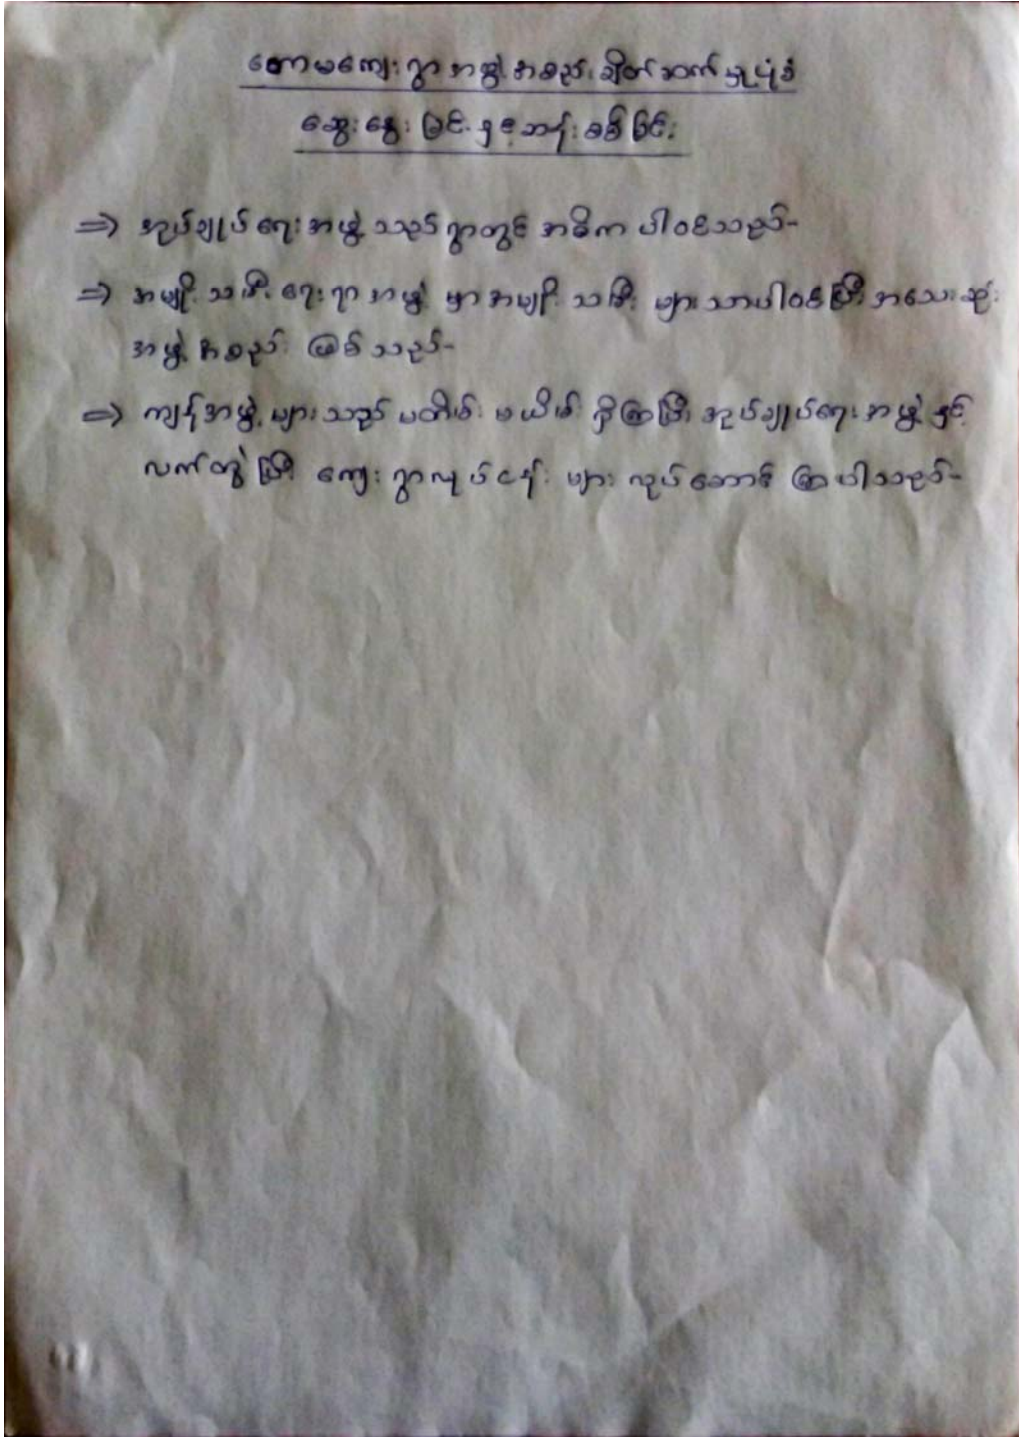 တောမကျေးရွာအဖွဲ့အစည်းချိတ်ဆက်မှုပုံစံ
ဆွေးနွေးခြင်းနှင့်ဆန်းစစ်ခြင်း
⇒ အုပ်ချုပ်ရေးအဖွဲ့သည်ရွာတွင်အဓိကပါဝင်သည်-
⇒ အမျိုးသမီးရေးရာအဖွဲ့မှာအမျိုးသမီးများသာပါဝင်ပြီးအသေးဆုံး
အဖွဲ့အစည်းဖြစ်သည်-
⇒ ကျန်အဖွဲ့များသည်မတိမ်းမယိမ်းရှိကြပြီးအုပ်ချုပ်ရေးအဖွဲ့နှင့်
လက်တွဲပြီးကျေးရွာလုပ်ငန်းများလုပ်ဆောင်ကြပါသည်-